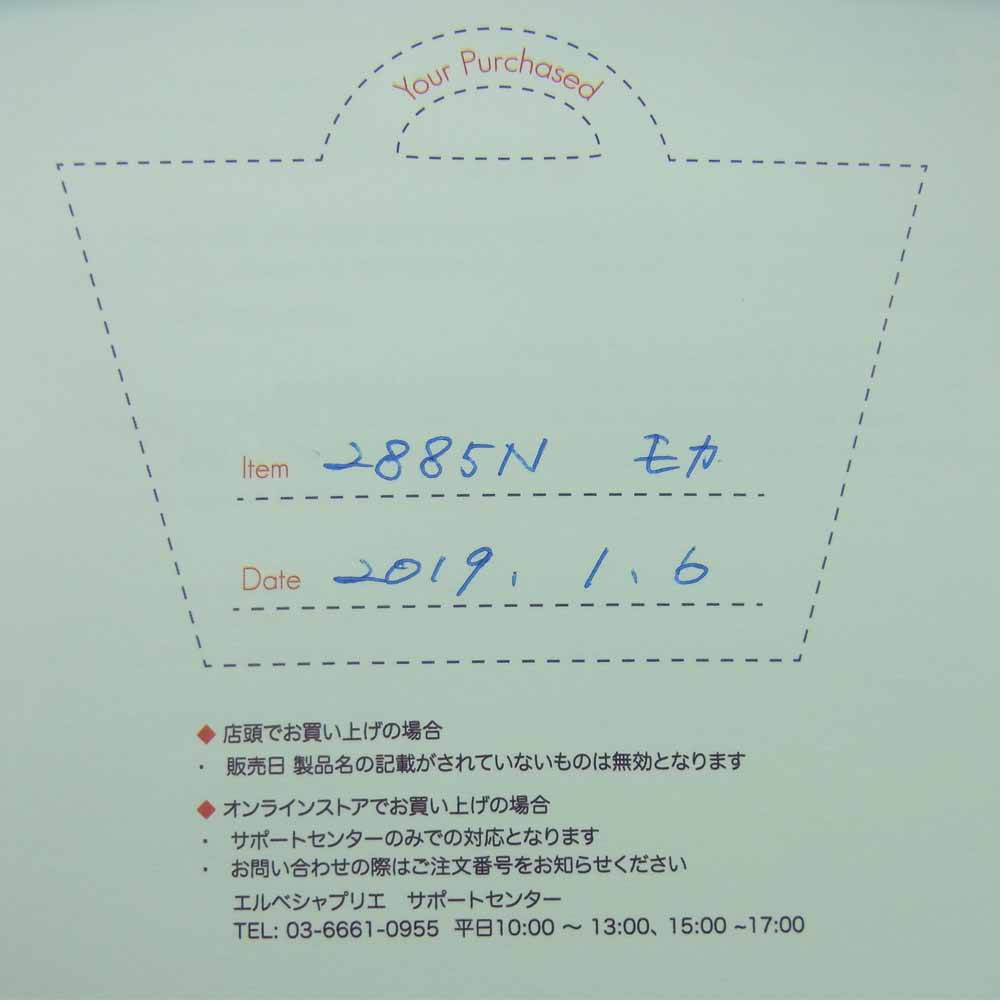 Your Purchased
Item 2885N モカ
Date 2019. 1. 6
◆ 店頭でお買い上げの場合
・ 販売日 製品名の記載がされていないものは無効となります
◆ オンラインストアでお買い上げの場合
・ サポートセンターのみでの対応となります
・ お問い合わせの際はご注文番号をお知らせください
エルベシャプリエ サポートセンター
TEL: 03-6661-0955 平日10:00 〜 13:00、15:00 ~17:00